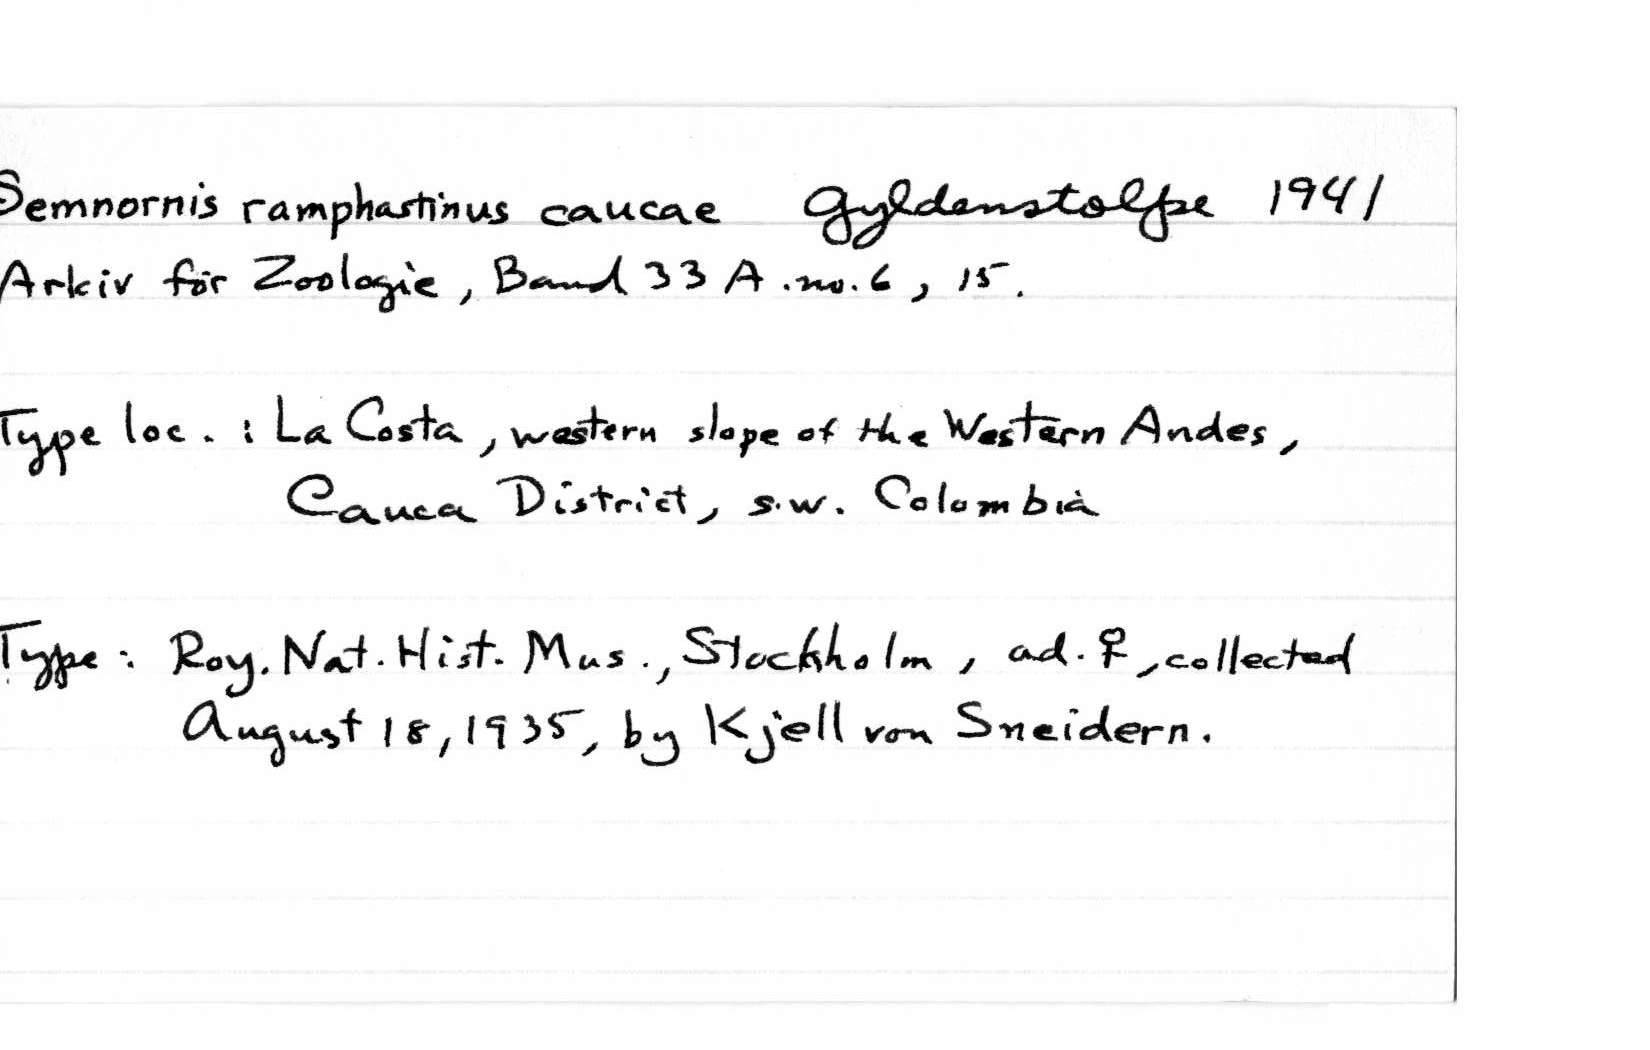 Semnornis ramphastinus caucae Gyldenstolpe 1941
Arkiv för Zoologie, Band 33 A. no. 6, 15.
Type loc. : La Costa, western slope of the Western Andes,
Cauca District, s.w. Colombia
Type : Roy. Nat. Hist. Mus., Stockholm, ad. ♀, collected
August 18, 1935, by Kjell von Sneidern.